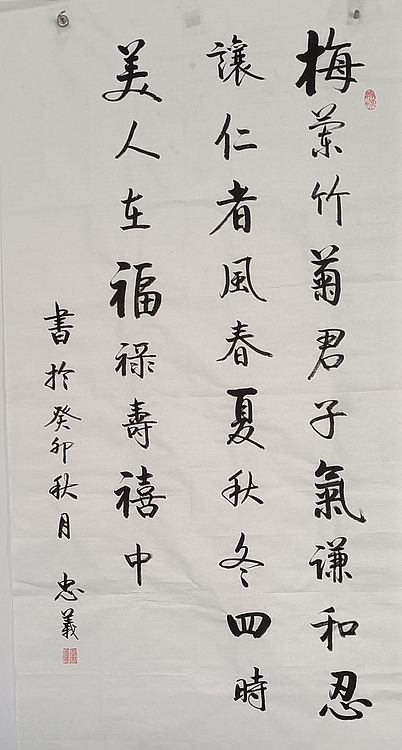 梅蘭竹菊君子氣謙和忍
讓仁者風春夏秋冬四時
美人在福祿壽禧中
書於癸卯秋月 忠義